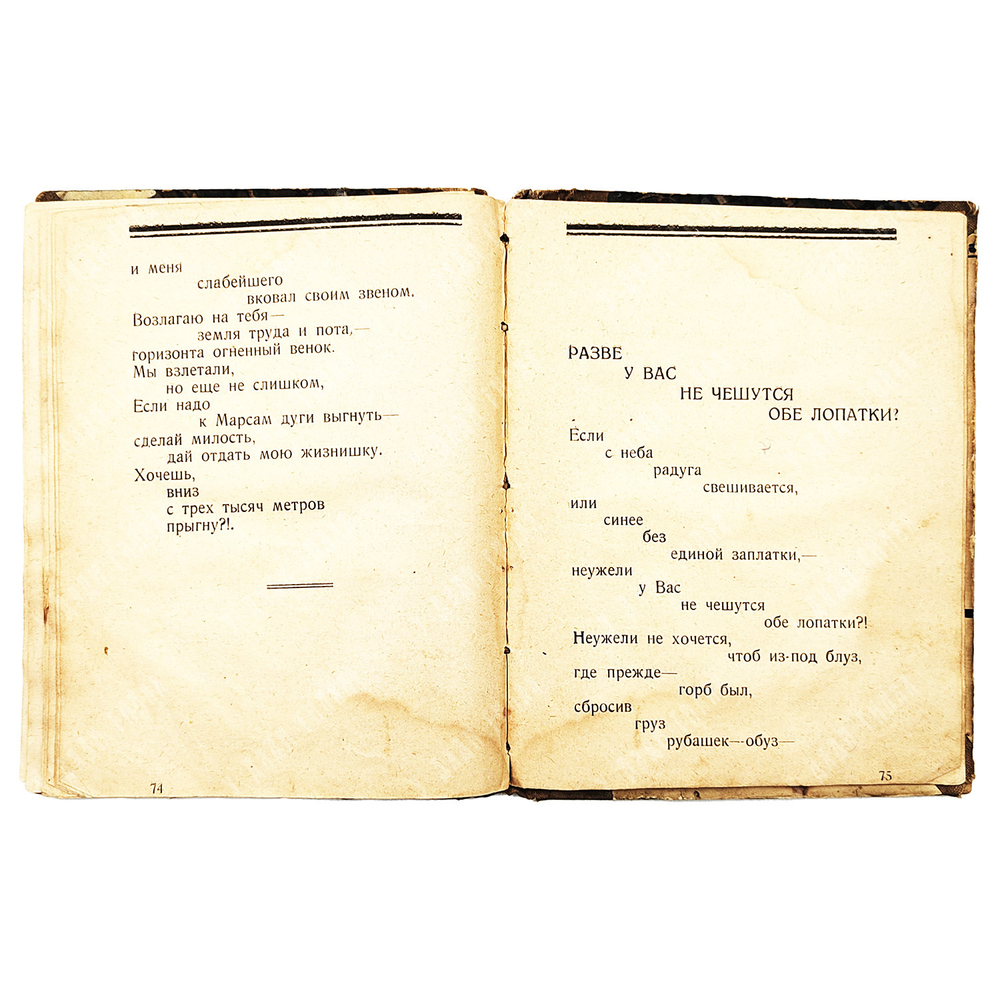 и меня
слабейшего
вковал своим звеном.
Возлагаю на тебя—
земля труда и пота,—
горизонта огненный венок.
Мы взлетали,
но еще не слишком,
Если надо
к Марсам дуги выгнуть—
сделай милость,
дай отдать мою жизнишку.
Хочешь,
вниз
с трех тысяч метров
прыгну?!.
74
РАЗВЕ
У ВАС
НЕ ЧЕШУТСЯ
ОБЕ ЛОПАТКИ?
Если
с неба
радуга
свешивается,
или
синее
без
единой заплатки,—
неужели
у Вас
не чешутся
обе лопатки?!
Неужели не хочется,
чтоб из-под блуз,
где прежде—
горб был,
сбросив
груз
рубашек—обуз—
75